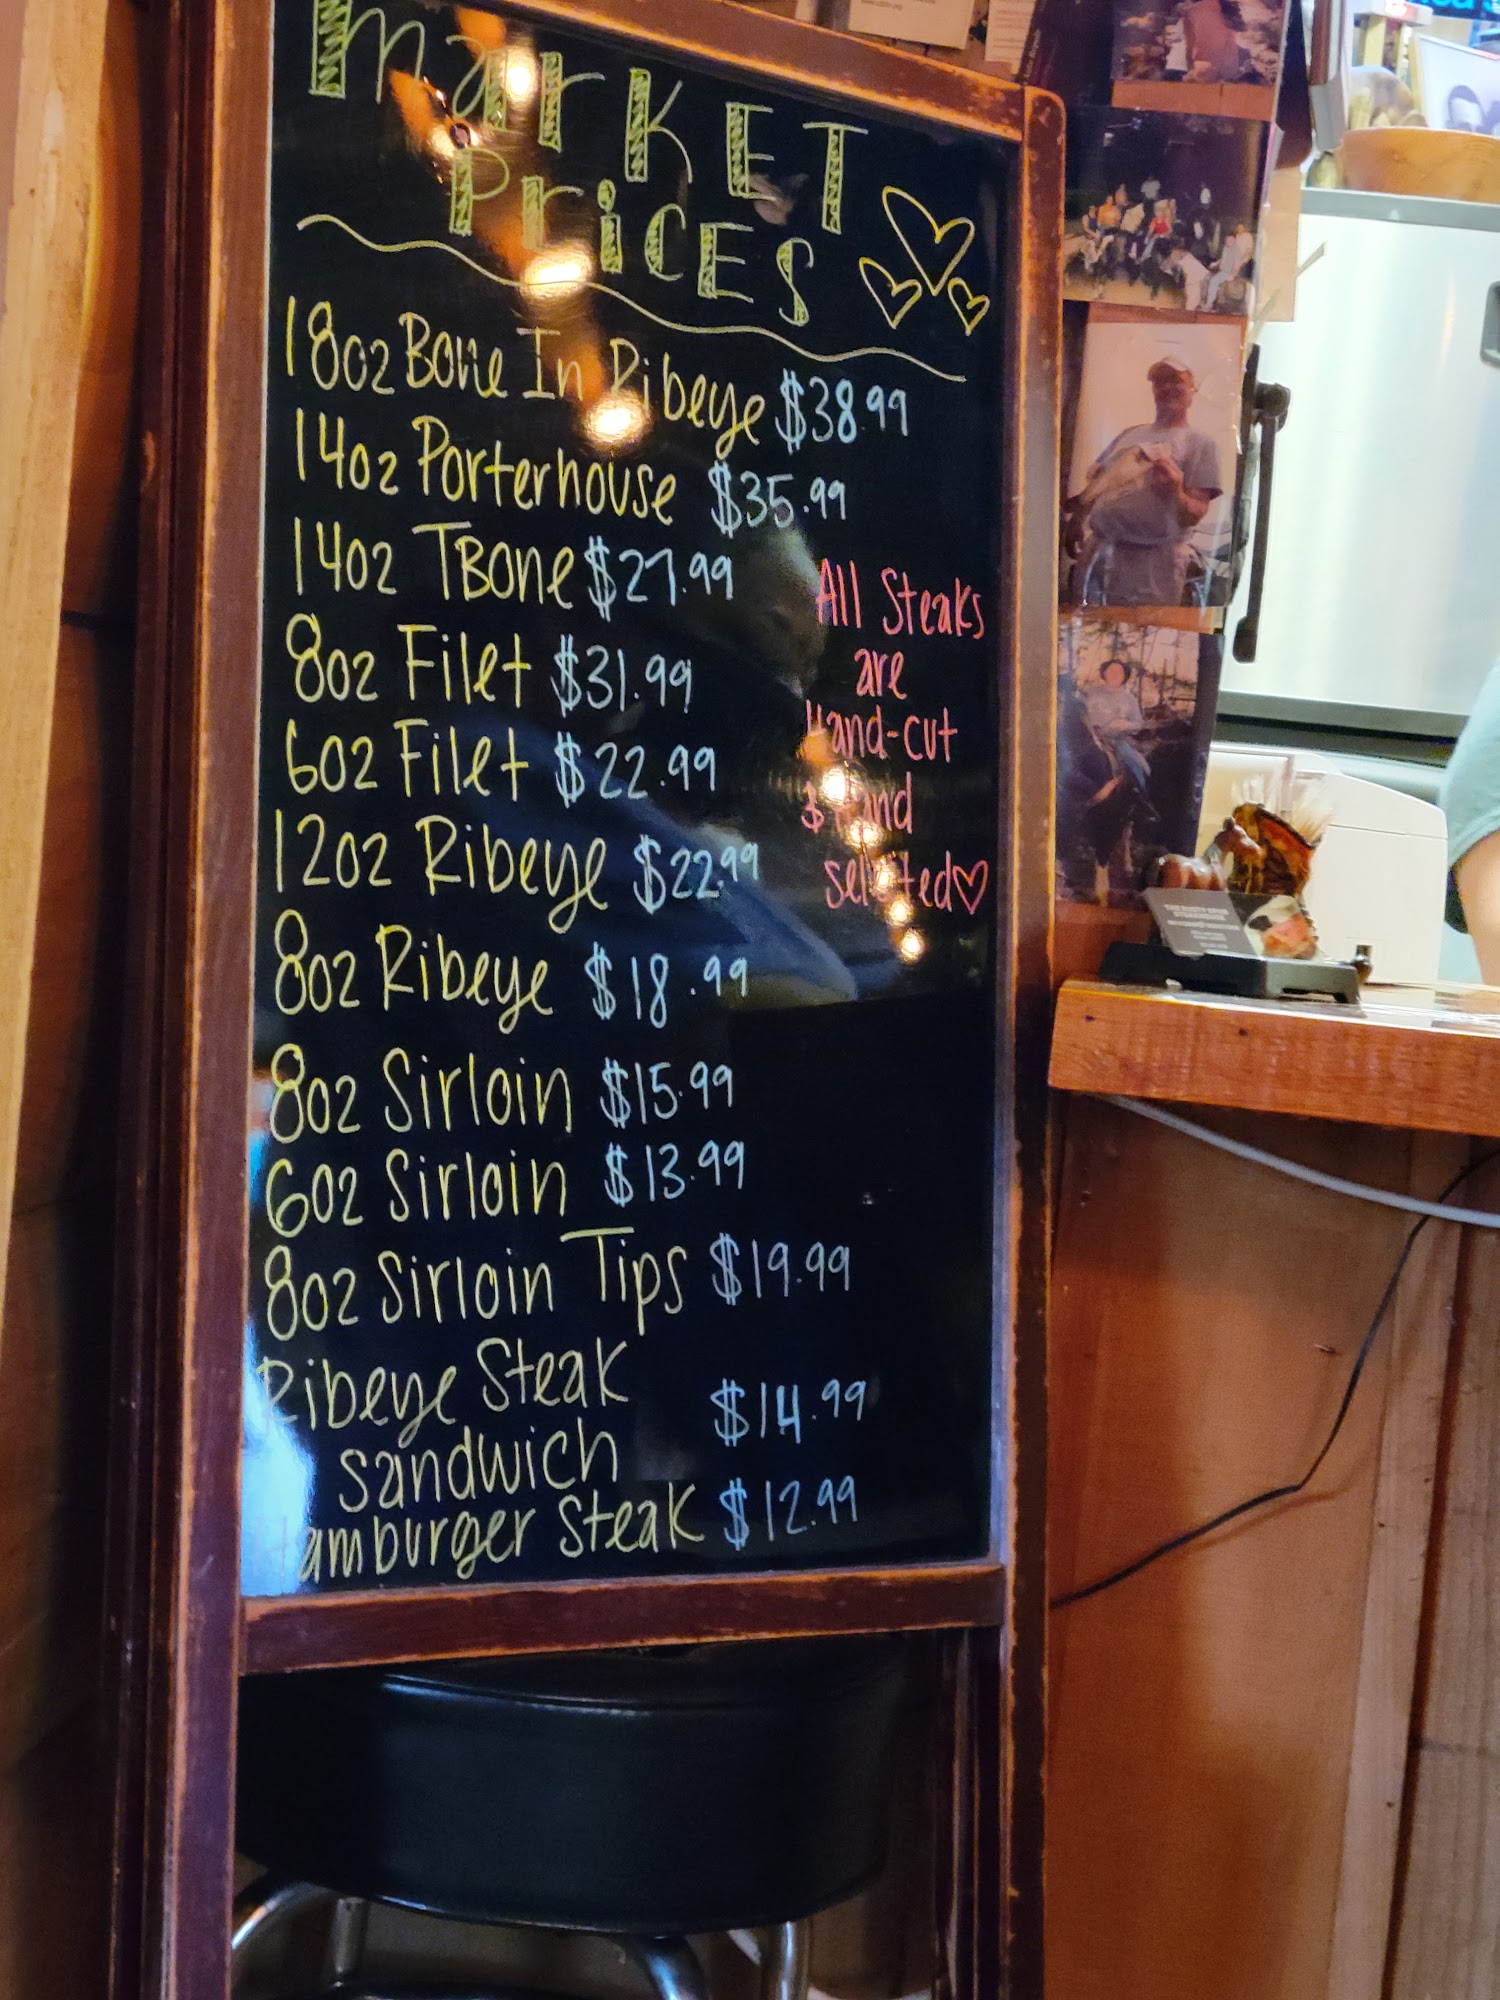 Market
Prices
18oz Bone In Ribeye $38.99
14oz Porterhouse $35.99
14oz TBone $27.99
8oz Filet $31.99
6oz Filet $22.99
12oz Ribeye $22.99
8oz Ribeye $18.99
8oz Sirloin $15.99
6oz Sirloin $13.99
8oz Sirloin Tips $19.99
Ribeye Steak
Sandwich $14.99
Hamburger Steak $12.99
All Steaks
are
Hand-cut
& Hand
selected
THE RUSTY SPUR
STEAKHOUSE